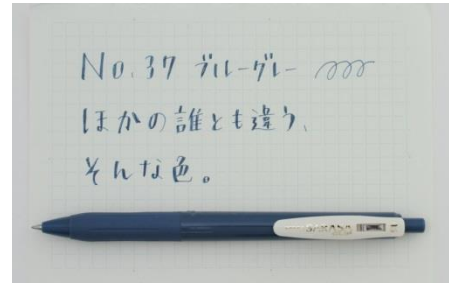 No.37 ブルーグレー
ほかの誰とも違う、
そんな色。
SARASA